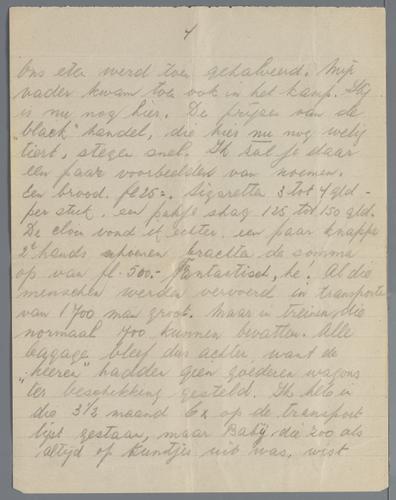 4
Ons eten werd toen gehalveerd. Mijn
vader kwam toen ook in het kamp. Hij
is nu nog hier. De prijzen van de
"black" handel, die hier nu nog welig
tiert, stegen snel. Ik zal je daar
een paar voorbeelden van noemen.
Een brood. fl 25=. Sigaretten 3 tot 4 gld -
per stuk, een pakje shag 125, tot 150 gld.
De clou vond ik echter, een paar knappe
2e hands schoenen brachten de somma
op van fl. 500.- Fantastisch, he. Al die
menschen werden vervoerd in transporten
van 1700 man groot. Maar in treinen, die
normaal 700 kunnen bevatten. Alle
baggage bleef dus achter, want de
"heeren" hadden geen goederen wagons
ter beschikking gesteld. Ik heb in
die 3½ maand 6x op de transport
lijst gestaan, maar Baby, die zoo als
altijd op kuntjes uit was, wist